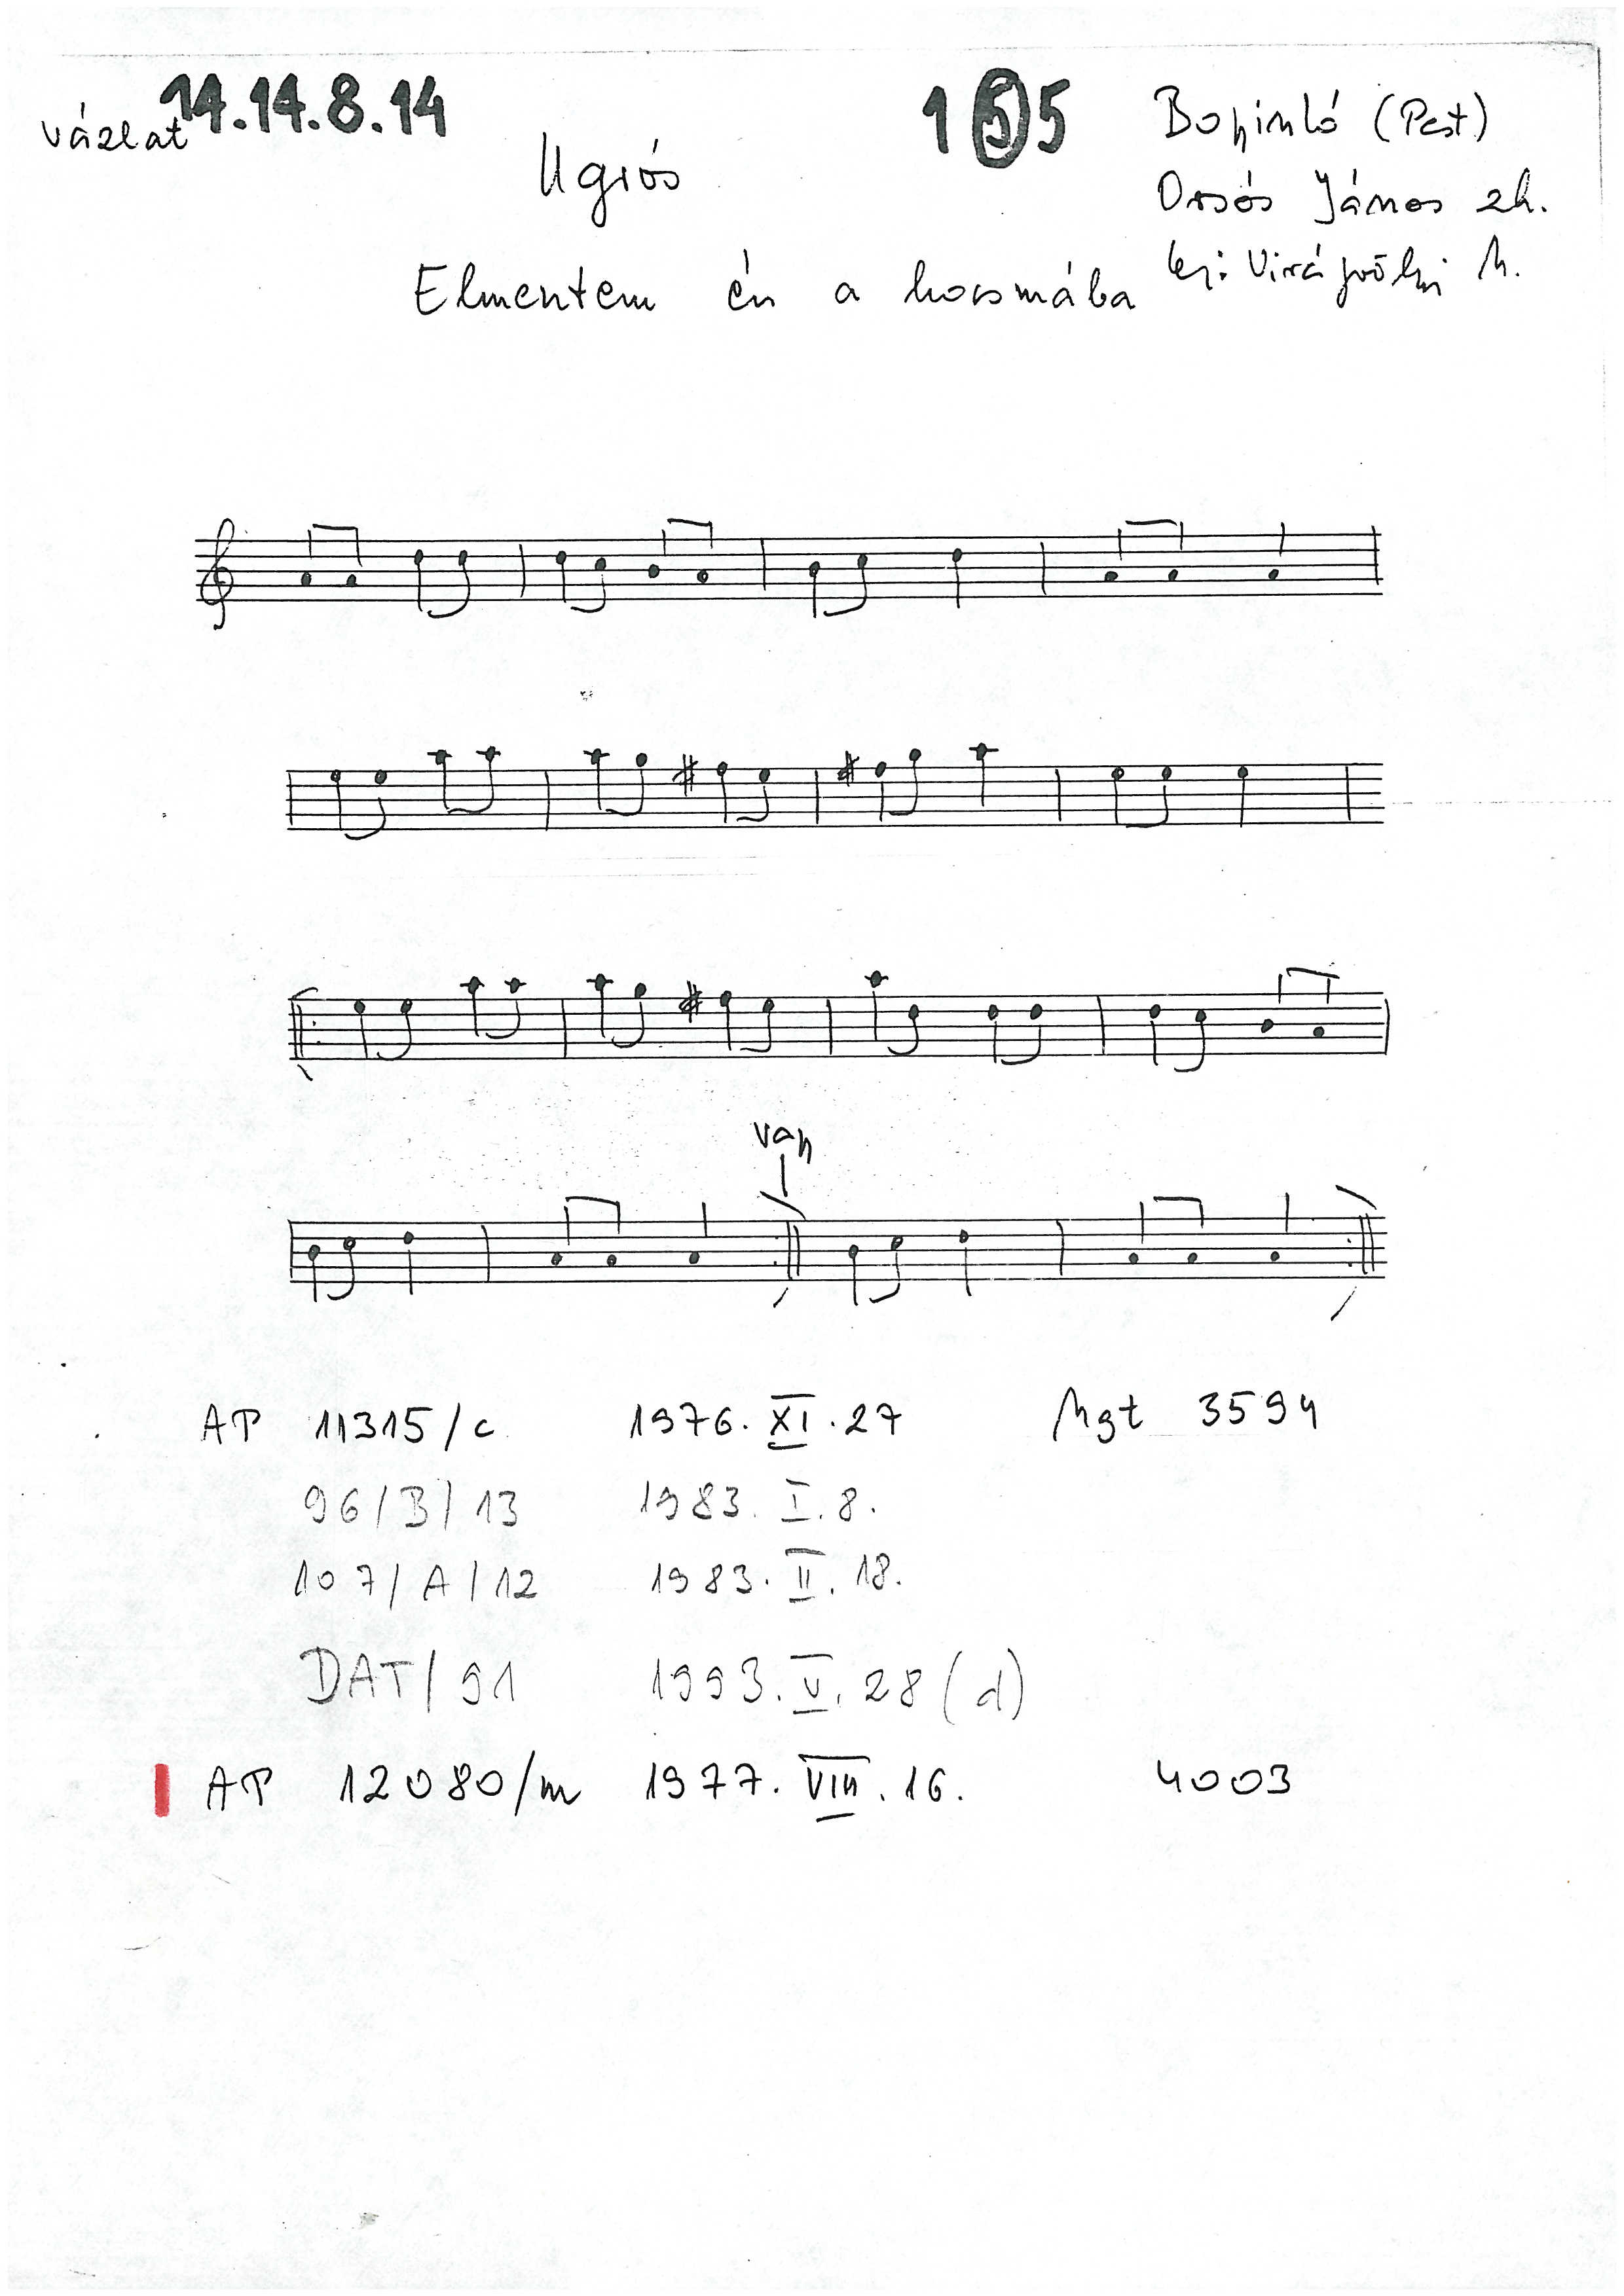 14.14.8.14 1 5 5 (Pest)
vázlat
Ugrós
Orsós János zh.
Elmentem én a kocsmába
van
AP 11315/c 1976. XI. 27 Mgt 3594
96/B/13 1983. I. 8.
107/A/12 1983. II. 18.
DAT/91 1993. V. 28 (d)
AP 12080/m 1977. VIII. 16. 4003